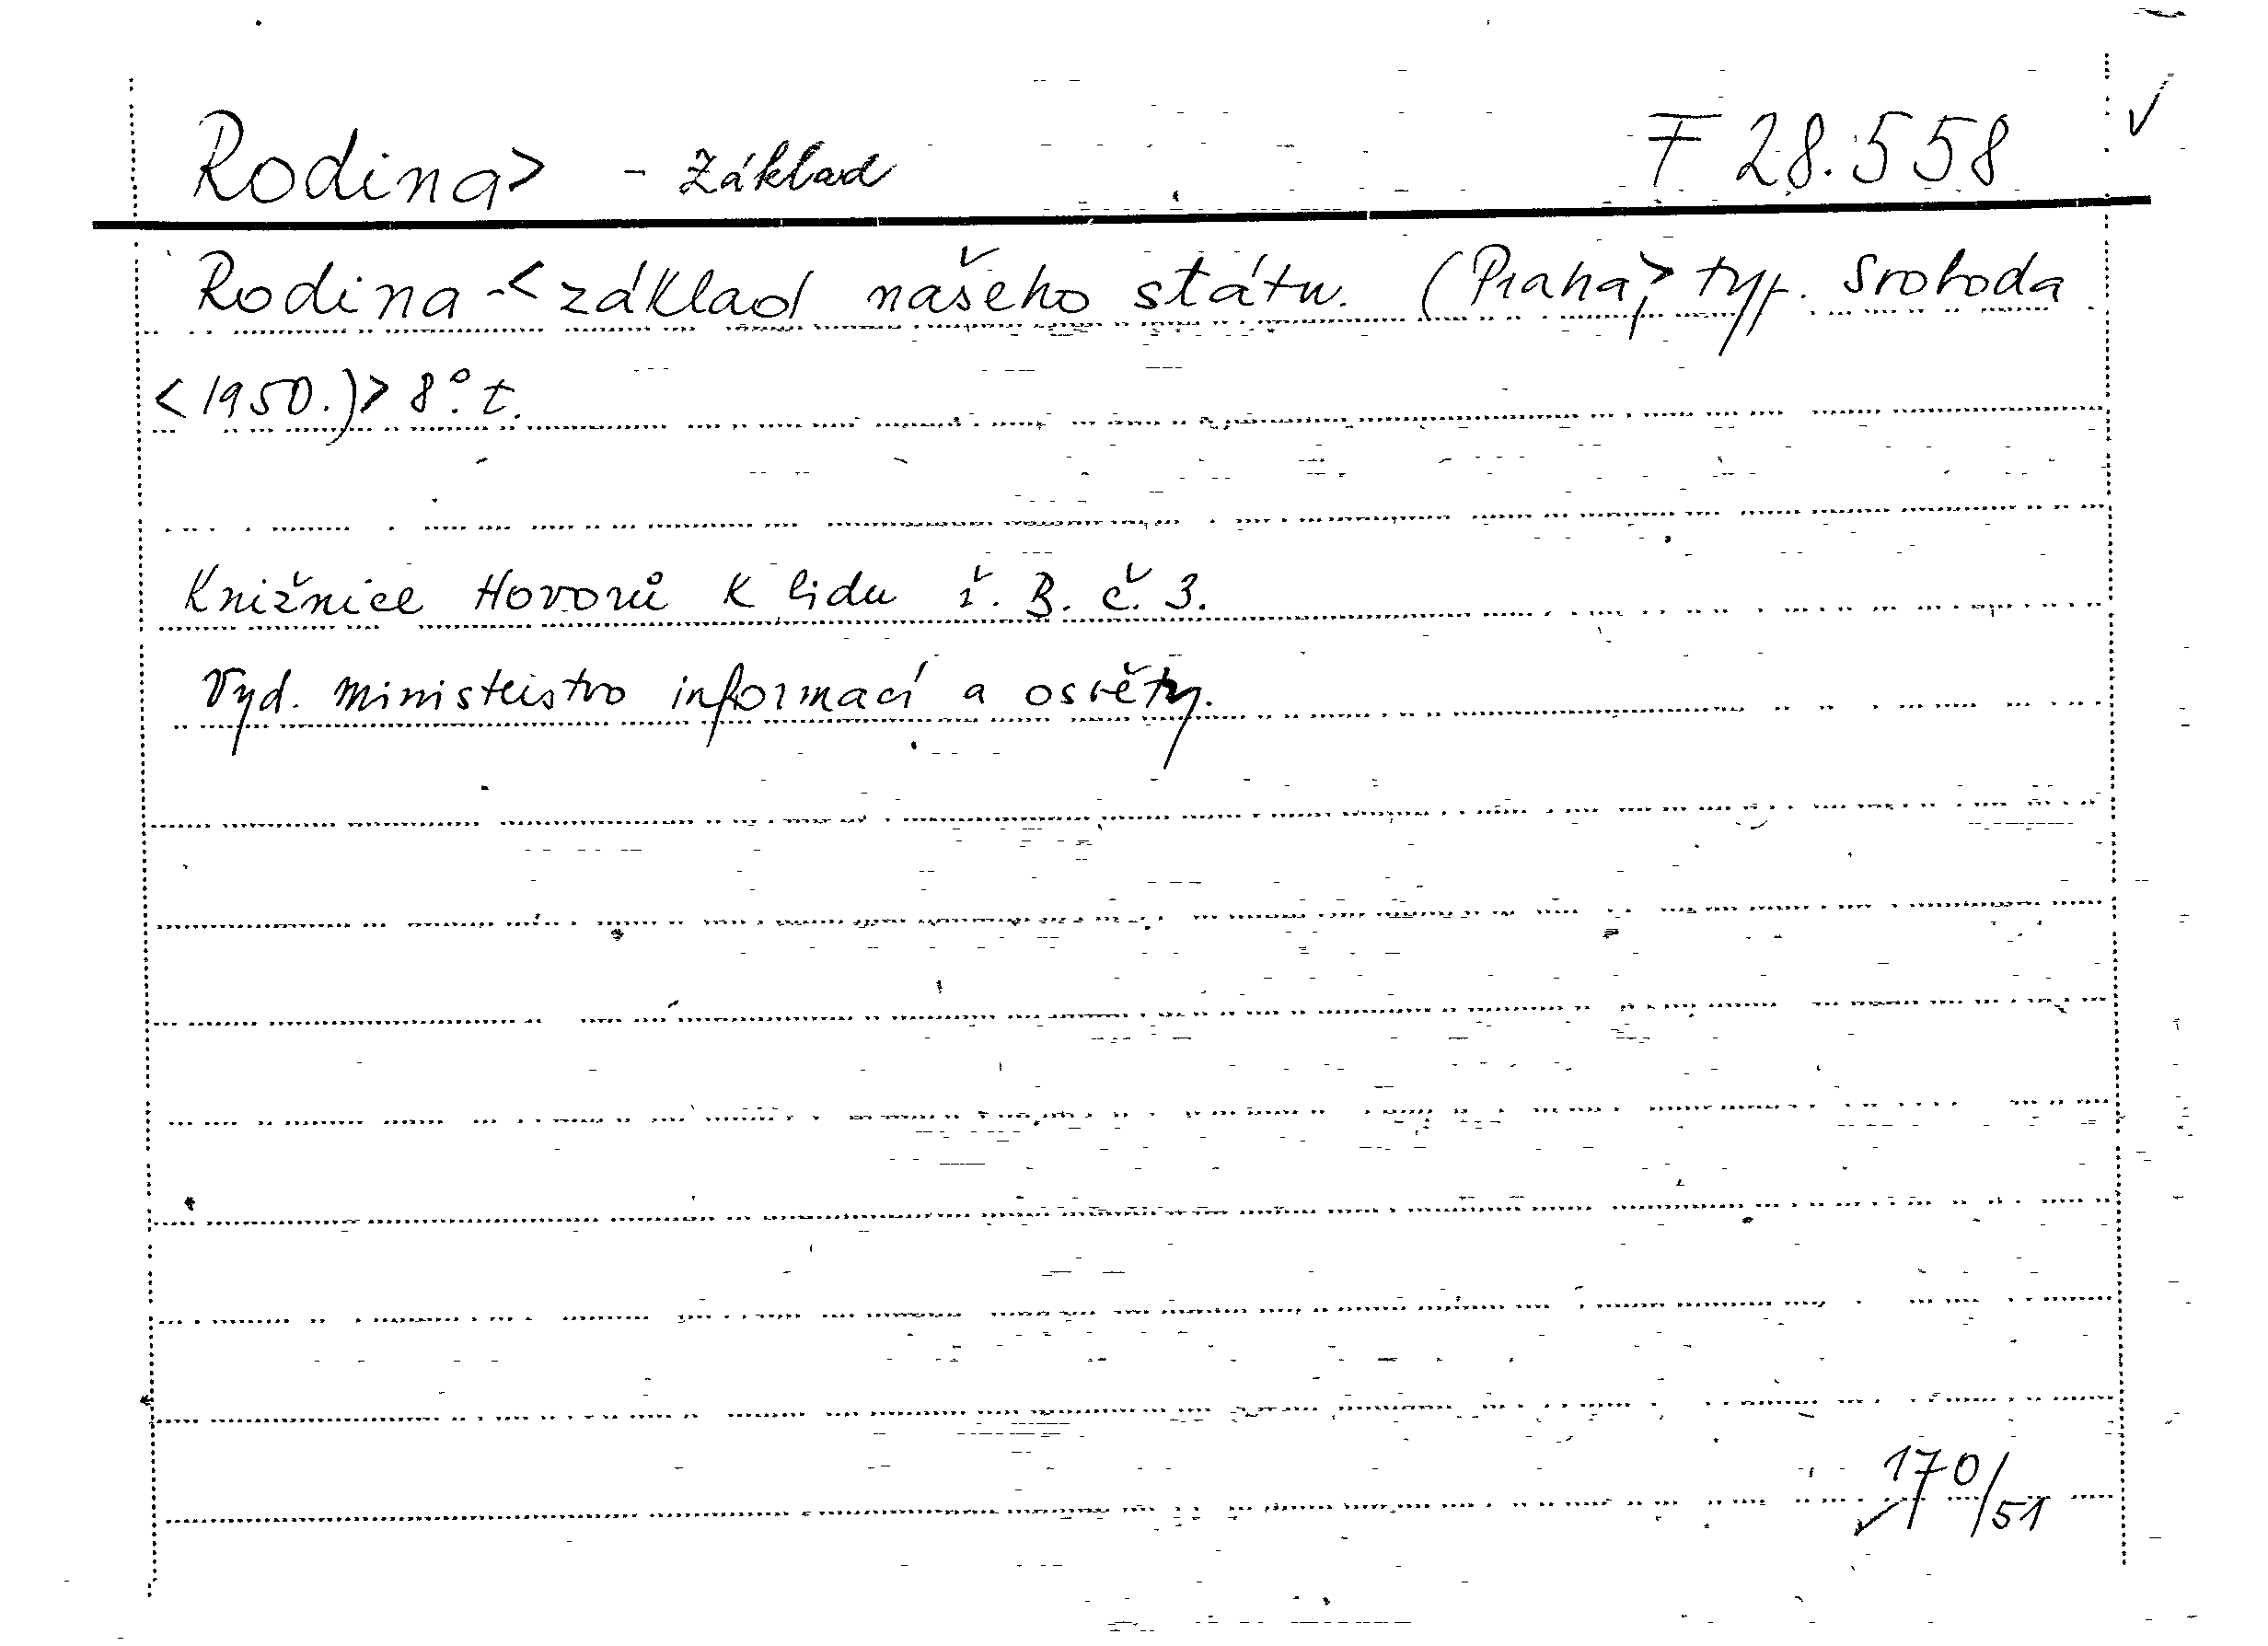 Rodina> - základ F 28.558
Rodina -< základ našeho státu. (Praha,> typ. Svoboda
<1950.)> 8°. t.
Knižnice Hovorů k lidu ř. B. č. 3.
Vyd. ministerstvo informací a osvěty.
170/51